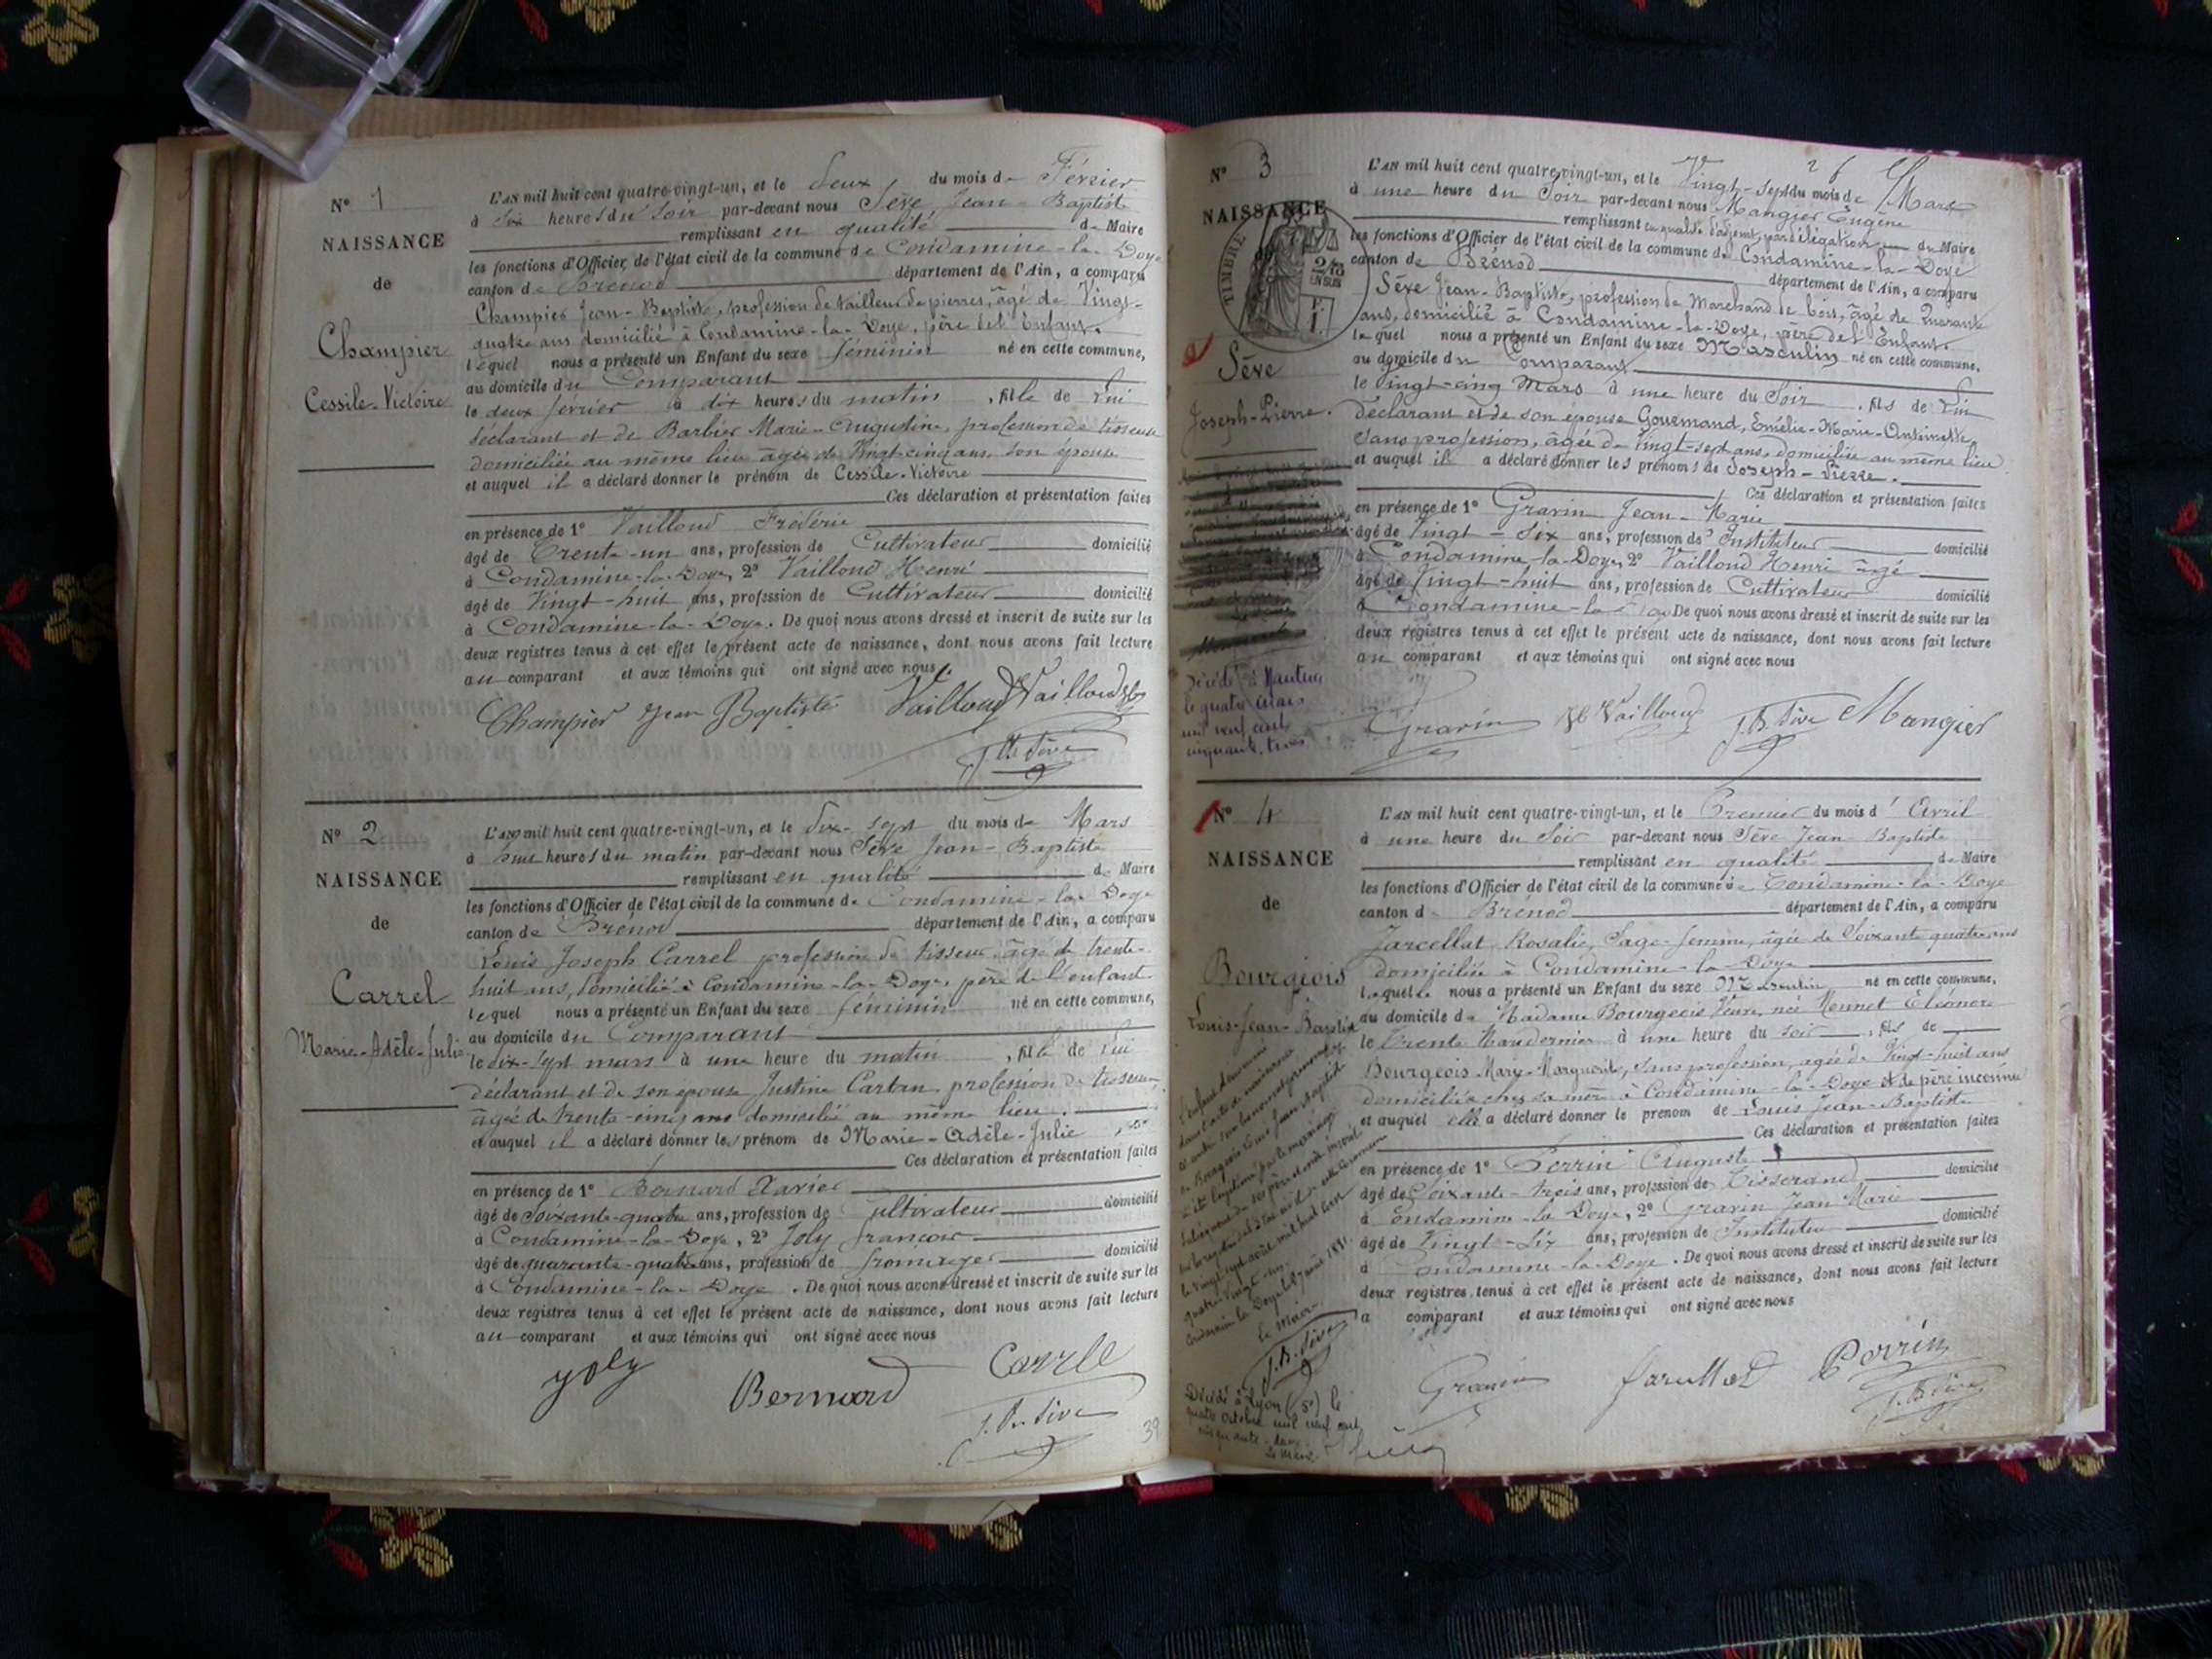 N° 1
NAISSANCE
de
Champier
Cessile-Victoire
L'AN mil huit cent quatre-vingt-un, et le deux du mois de Février
à six heures du soir par-devant nous Sève Jean-Baptiste
remplissant en qualité de Maire
les fonctions d'Officier de l'état civil de la commune de Condamine-la-Doye
canton de Brénod département de l'Ain, a comparu
Champier Jean-Baptiste, profession de tailleur de pierres, âgé de Vingt-
quatre ans domicilié à Condamine-la-Doye, père de l'Enfant.
lequel nous a présenté un Enfant du sexe féminin né en cette commune,
au domicile du Comparant
le deux février à dix heures du matin, fille de Lui
déclarant et de Barbier Marie-Augustine, profession de tisseuse
domiciliée au même lieu âgée de Vingt-cinq ans, son épouse
et auquel il a déclaré donner le prénom de Cessile-Victoire
Ces déclaration et présentation faites
en présence de 1° Vailloud Frédéric
âgé de Trente-un ans, profession de Cultivateur domicilié
à Condamine-la-Doye, 2° Vailloud Henri
âgé de Vingt-huit ans, profession de Cultivateur domicilié
à Condamine-la-Doye. De quoi nous avons dressé et inscrit de suite sur les
deux registres tenus à cet effet le présent acte de naissance, dont nous avons fait lecture
au comparant et aux témoins qui ont signé avec nous.
Champier Jean Baptiste Vailloud Vailloud
J.B. Sève
N° 2
NAISSANCE
de
Carrel
Marie-Adèle-Julie
L'AN mil huit cent quatre-vingt-un, et le dix-sept du mois de Mars
à huit heures du matin par-devant nous Sève Jean-Baptiste
remplissant en qualité de Maire
les fonctions d'Officier de l'état civil de la commune de Condamine-la-Doye
canton de Brénod département de l'Ain, a comparu
Louis Joseph Carrel profession de tisseur âgé de trente-
huit ans, domicilié à Condamine-la-Doye, père de l'enfant
lequel nous a présenté un Enfant du sexe féminin né en cette commune,
au domicile du Comparant
le dix-sept mars à une heure du matin, fille de Lui
déclarant et de son épouse Justine Carban profession de tisseuse
âgé de trente-cinq ans domiciliée au même lieu.
et auquel il a déclaré donner les prénom de Marie-Adèle-Julie
Ces déclaration et présentation faites
en présence de 1° Bernard Xavier
âgé de soixante-quatre ans, profession de Cultivateur domicilié
à Condamine-la-Doye, 2° Joly françois
âgé de quarante-quatre ans, profession de fromager domicilié
à Condamine-la-Doye. De quoi nous avons dressé et inscrit de suite sur les
deux registres tenus à cet effet le présent acte de naissance, dont nous avons fait lecture
au comparant et aux témoins qui ont signé avec nous
Joly Bernard Carrel
J.B. Sève
39
N° 3
NAISSANCE
TIMBRE
Sève
Joseph-Pierre.
Décédé à Nantua
le quatre
mil neuf cent
cinquante trois
L'AN mil huit cent quatre-vingt-un, et le Vingt-sept du mois de Mars
à une heure du Soir par-devant nous Mangier Eugène
remplissant en qualité d'adjoint, par délégation de Maire
les fonctions d'Officier de l'état civil de la commune de Condamine-la-Doye
canton de Brénod département de l'Ain, a comparu
Sève Jean-Baptiste, profession de Marchand de bois, âgé de Quarante
ans, domicilié à Condamine-la-Doye, père de l'Enfant.
lequel nous a présenté un Enfant du sexe Masculin né en cette commune,
au domicile du Comparant
le Vingt-cinq Mars à une heure du Soir, fils de Lui
déclarant et de son épouse Gourmand, Emélie-Marie-Antoinette
Sans profession, âgée de Vingt-sept ans, domiciliée au même lieu
et auquel il a déclaré donner les prénoms de Joseph-Pierre.
Ces déclaration et présentation faites
en présence de 1° Gravin Jean-Marie
âgé de Vingt-Six ans, profession de Instituteur domicilié
à Condamine-la-Doye, 2° Vailloud Henri âgé
âgé de Vingt-huit ans, profession de Cultivateur domicilié
à Condamine-la-Doye De quoi nous avons dressé et inscrit de suite sur les
deux registres tenus à cet effet le présent acte de naissance, dont nous avons fait lecture
au comparant et aux témoins qui ont signé avec nous
Gravin Vailloud J.B. Sève Mangier
N° 4
NAISSANCE
de
Bourgeois
Louis-Jean-Baptiste
L'AN mil huit cent quatre-vingt-un, et le Premier du mois d'Avril
à une heure du Soir par-devant nous Sève Jean-Baptiste
remplissant en qualité de Maire
les fonctions d'Officier de l'état civil de la commune de Condamine-la-Doye
canton de Brénod département de l'Ain, a comparu
Jarcellat Rosalie, Sage-femme, âgée de Soixante quatre ans
domiciliée à Condamine-la-Doye
laquelle nous a présenté un Enfant du sexe Masculin né en cette commune,
au domicile de Madame Bourgeois Veuve, née Monnet Eléonore
le Trente Mars dernier à une heure du soir, fils de
Bourgeois Marie-Marguerite, sans profession, âgée de Vingt-huit ans
domiciliée chez sa mère à Condamine-la-Doye et de père inconnu
et auquel elle a déclaré donner le prénom de Louis Jean-Baptiste
Ces déclaration et présentation faites
en présence de 1° Perrin Auguste
âgé de Soixante-trois ans, profession de Tisserand domicilié
à Condamine-la-Doye, 2° Gravin Jean Marie
âgé de Vingt-Six ans, profession de Instituteur domicilié
à Condamine-la-Doye. De quoi nous avons dressé et inscrit de suite sur les
deux registres tenus à cet effet le présent acte de naissance, dont nous avons fait lecture
a comparant et aux témoins qui ont signé avec nous
Gravin Jarcellat Perrin
J.B. Sève
le Maire
J.B. Sève
Décédé à Lyon (5e) le
quatre octobre mil neuf cent
cinquante-deux
Le Maire